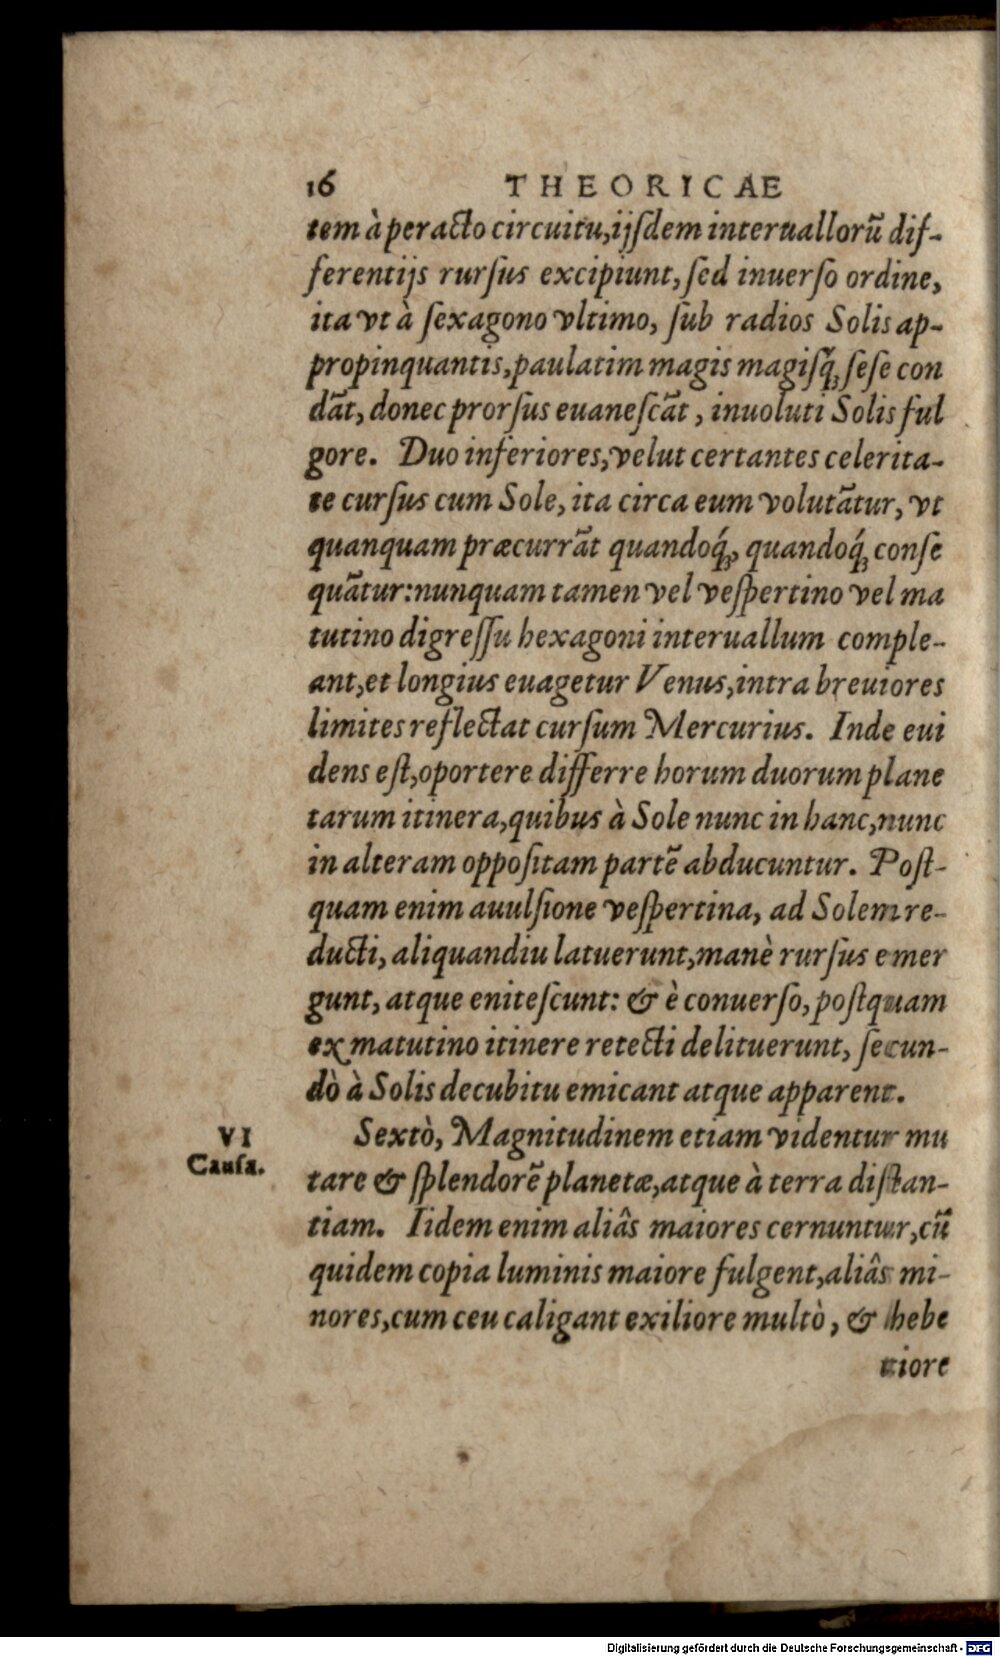 16 THEORICAE
tem à peracto circuitu,ijſdem interuallorũ dif-
ferentijs rurſus excipiunt, ſed inuerſo ordine,
ita vt à ſexagono vltimo, ſub radios Solis ap-
propinquantis,paulatim magis magiſq́ꝫ ſeſe con
dãt, donec prorſus euaneſcãt , inuoluti Solis ful
gore. Duo inferiores,velut certantes celerita-
te curſus cum Sole, ita circa eum volutãtur, vt
quanquam præcurrãt quandoq́ꝫ, quandoq́ꝫ conſe
quãtur:nunquam tamen vel veſpertino vel ma
tutino digreſſu hexagoni interuallum comple-
ant,et longius euagetur Venus,intra breuiores
limites reflectat curſum Mercurius. Inde eui
dens eſt,oportere differre horum duorum plane
tarum itinera,quibus à Sole nunc in hanc,nunc
in alteram oppoſitam partẽ abducuntur. Poſt-
quam enim auulſione veſpertina, ad Solem re-
ducti, aliquandiu latuerunt,manè rurſus emer
gunt, atque eniteſcunt: & è conuerſo, poſtquam
ex matutino itinere retecti delituerunt, ſecun-
dò à Solis decubitu emicant atque apparent.
VI
Cauſa.
Sextò, Magnitudinem etiam videntur mu
tare & ſplendorẽ planetæ,atque à terra diſtan-
tiam. Iidem enim aliâs maiores cernuntur,cũ
quidem copia luminis maiore fulgent,aliâs mi-
nores,cum ceu caligant exiliore multò , & hebe
tiore
Digitalisierung gefördert durch die Deutsche Forschungsgemeinschaft - DFG